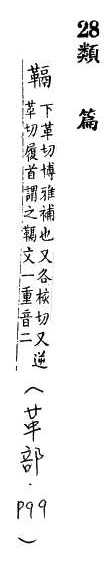 28類篇
䩹 下革切博雅補也又各核切又逆
革切履首謂之䩹文一重音二
(革部·P99)